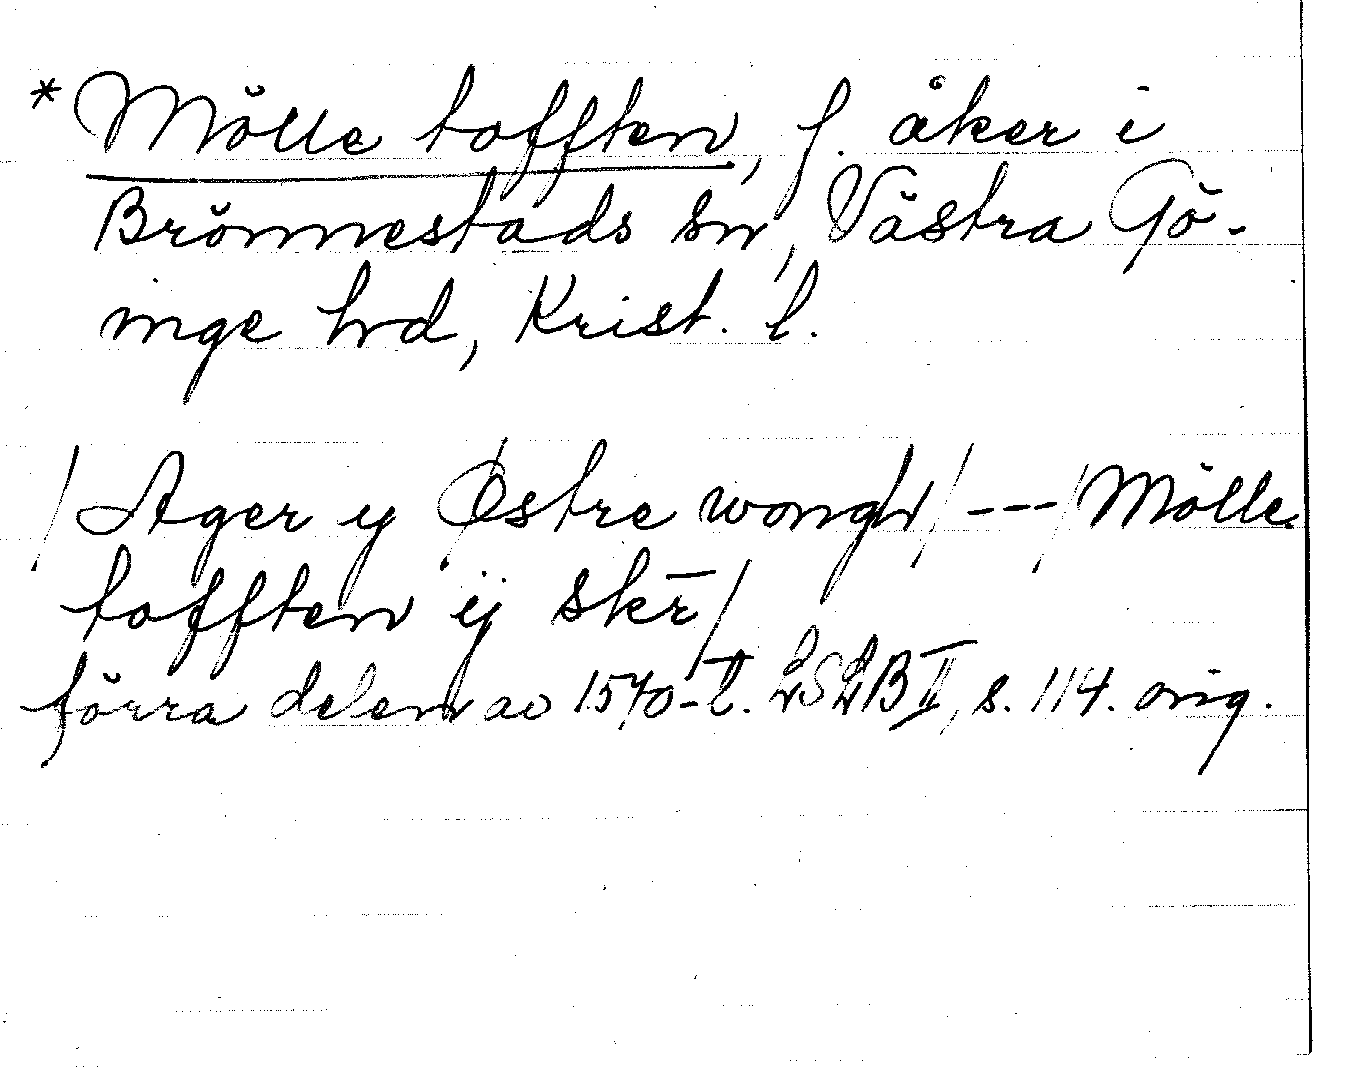 * Mölle tofften, f. åker i
Brönnestads sn, Västra Gö-
inge hrd, Krist. l.
/Ager y Østre wongh/ ---/Mölle
tofften ÿ skr̄/
förra delen av 1570-t. LSLB II, s. 114. orig.